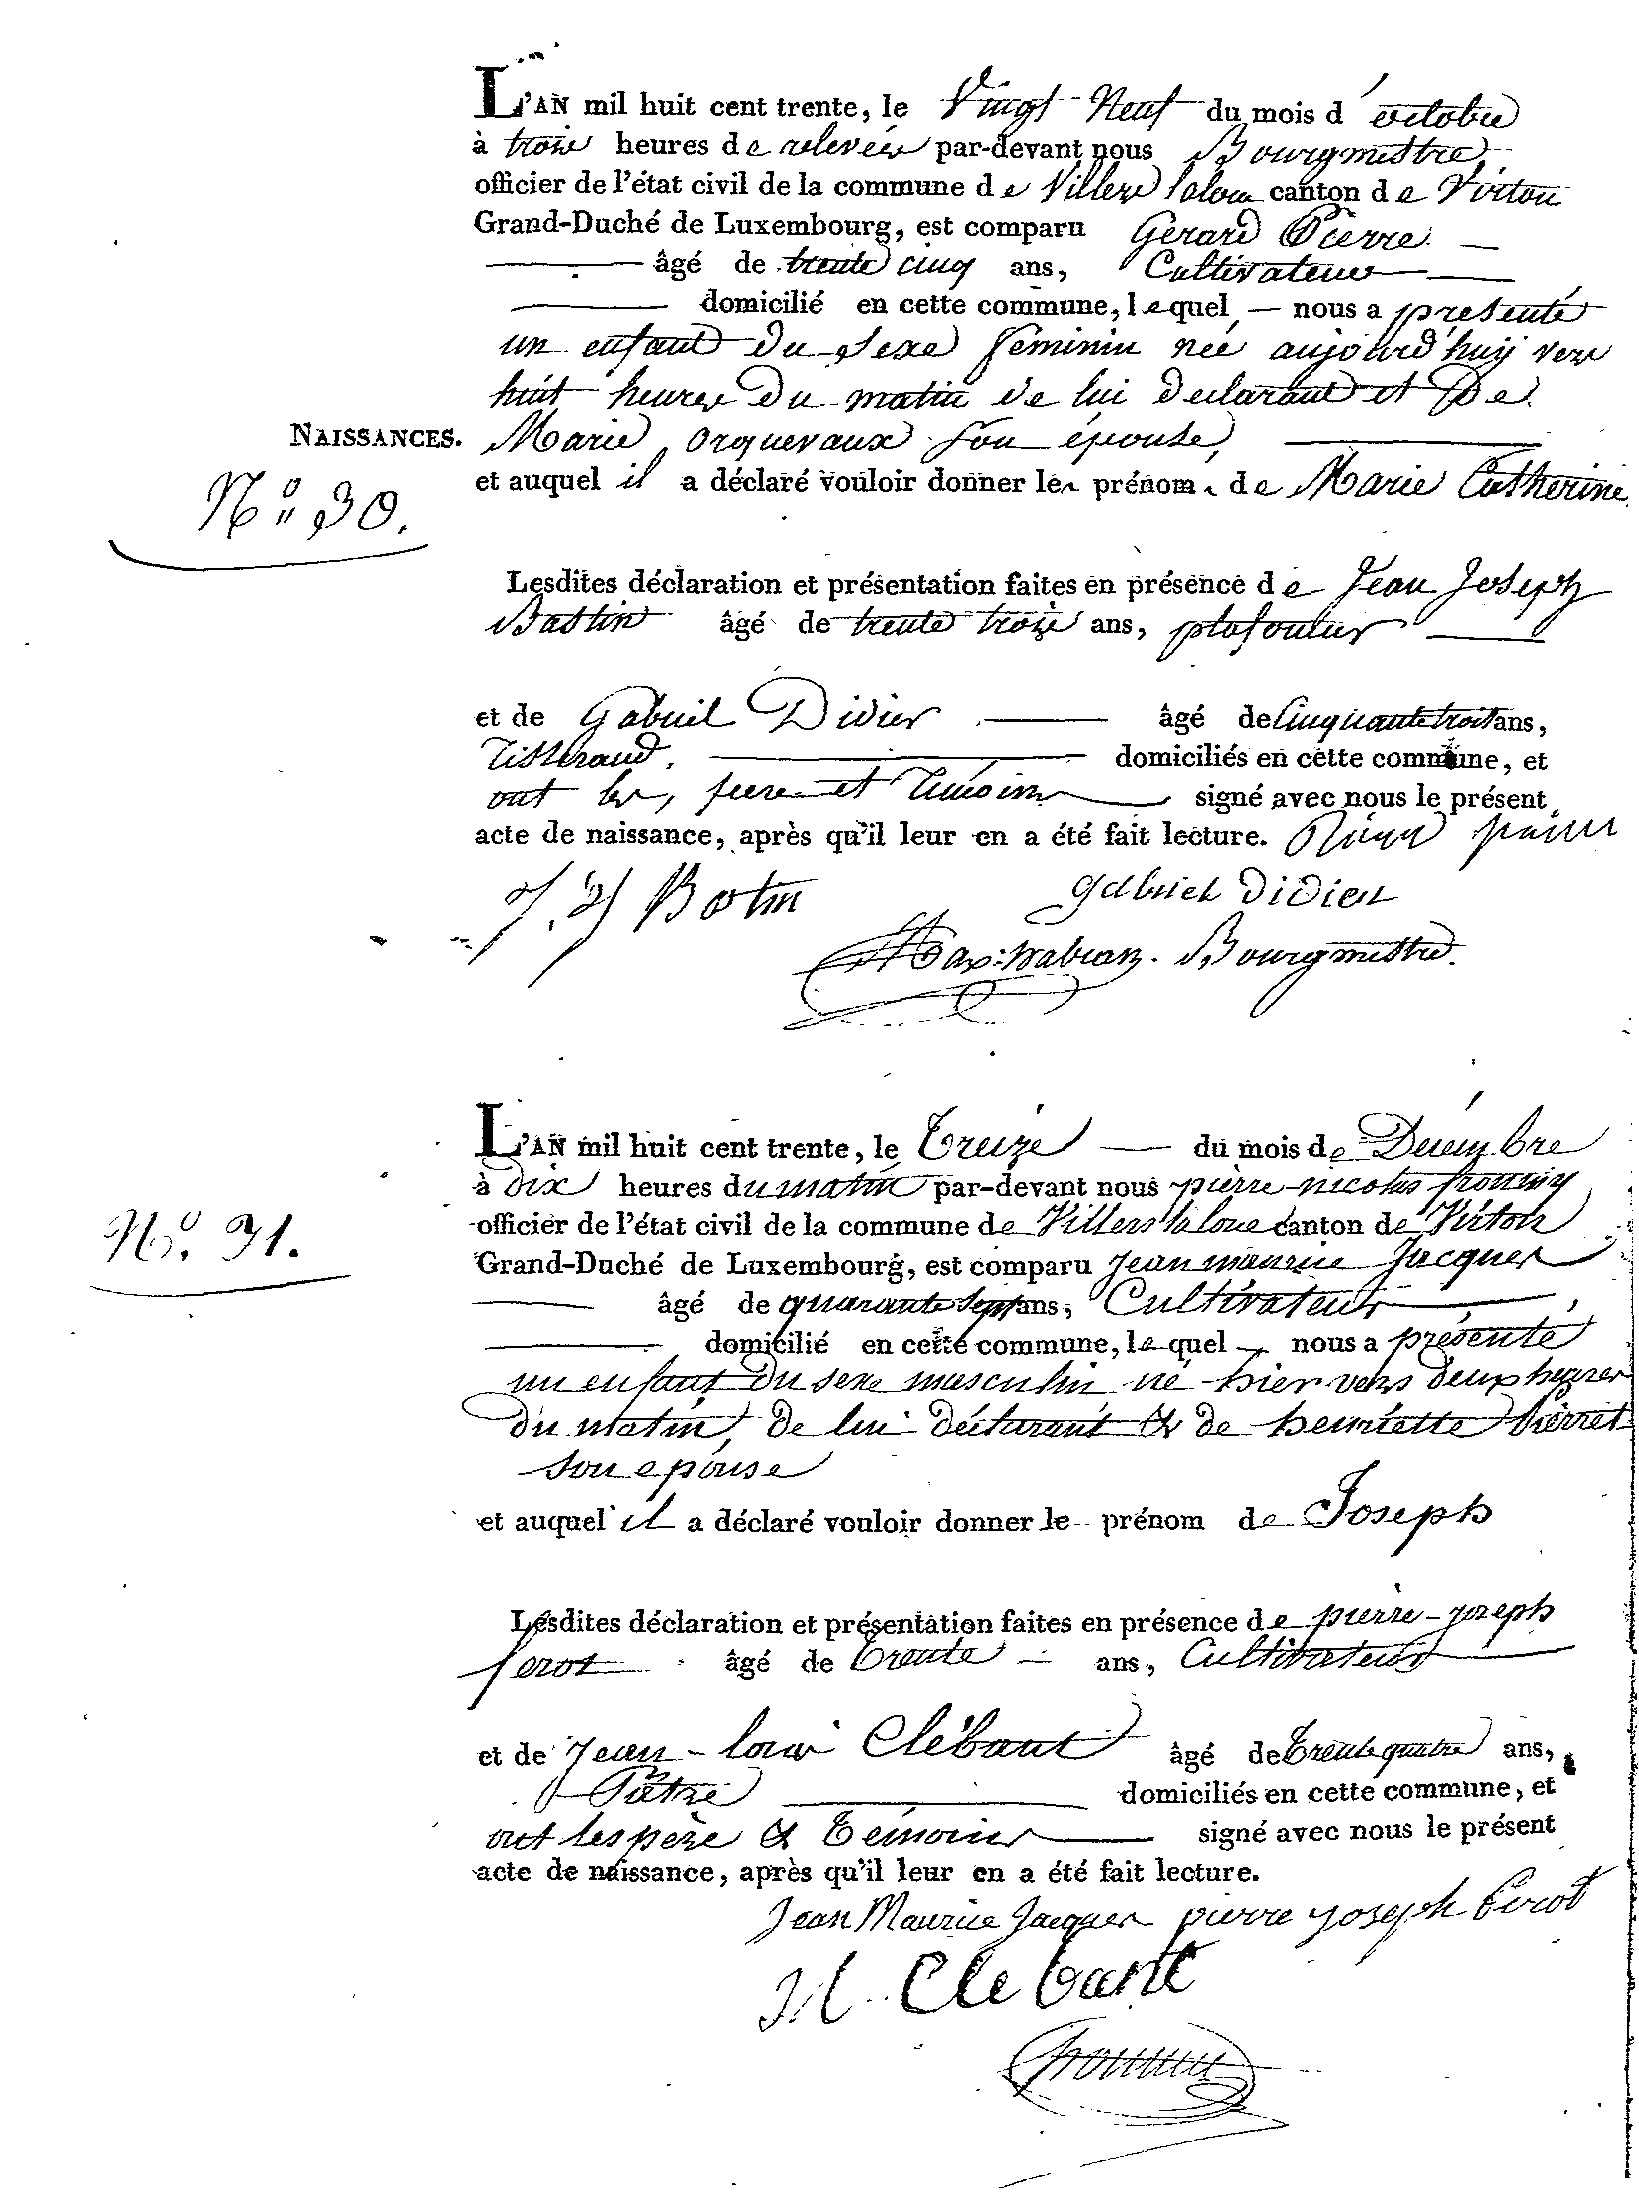 L'AN mil huit cent trente, le Vingt Neuf du mois d'octobre
à trois heures de relevée par-devant nous Bourgmestre,
officier de l'état civil de la commune de Villers laloue canton de Virton
Grand-Duché de Luxembourg, est comparu Gerard Pierre
âgé de trente cinq ans, Cultivateur
domicilié en cette commune, lequel nous a présenté
un enfant du sexe féminin née aujourd'huy vers
huit heures du matin de lui declarant et De
NAISSANCES. Marie Orquevaux son épouse,
et auquel il a déclaré vouloir donner les prénoms de Marie Catherine
N° 30.
Lesdites déclaration et présentation faites en présence de Jean Joseph
Bastin âgé de trente trois ans, plafonneur
et de Gabriel Didier âgé de Cinquante trois ans,
Tisserand. domiciliés en cette commune, et
ont les, pere et témoins signé avec nous le présent
acte de naissance, après qu'il leur en a été fait lecture.
J. J. Bastin Gabriel Didier
Bourgmestre.
L'AN mil huit cent trente, le Treize du mois de Décembre
à dix heures du matin par-devant nous pierre nicolas
N° 31.
officier de l'état civil de la commune de Villers laloue canton de Virton
Grand-Duché de Luxembourg, est comparu Jean maurice Jacques
âgé de quarante sept ans, Cultivateur
domicilié en cette commune, lequel nous a présenté
un enfant du sexe masculin né hier vers deux heures
du matin, de lui déclarant & de henriette pierret
son epouse
et auquel il a déclaré vouloir donner le prénom de Joseph
Lesdites déclaration et présentation faites en présence de pierre-joseph
ferot âgé de trente ans, Cultivateur
et de Jean-louis Clébant âgé de trente quatre ans,
Pâtre domiciliés en cette commune, et
ont les père & témoins signé avec nous le présent
acte de naissance, après qu'il leur en a été fait lecture.
Jean Maurice Jacques pierre joseph ferot
Clebant